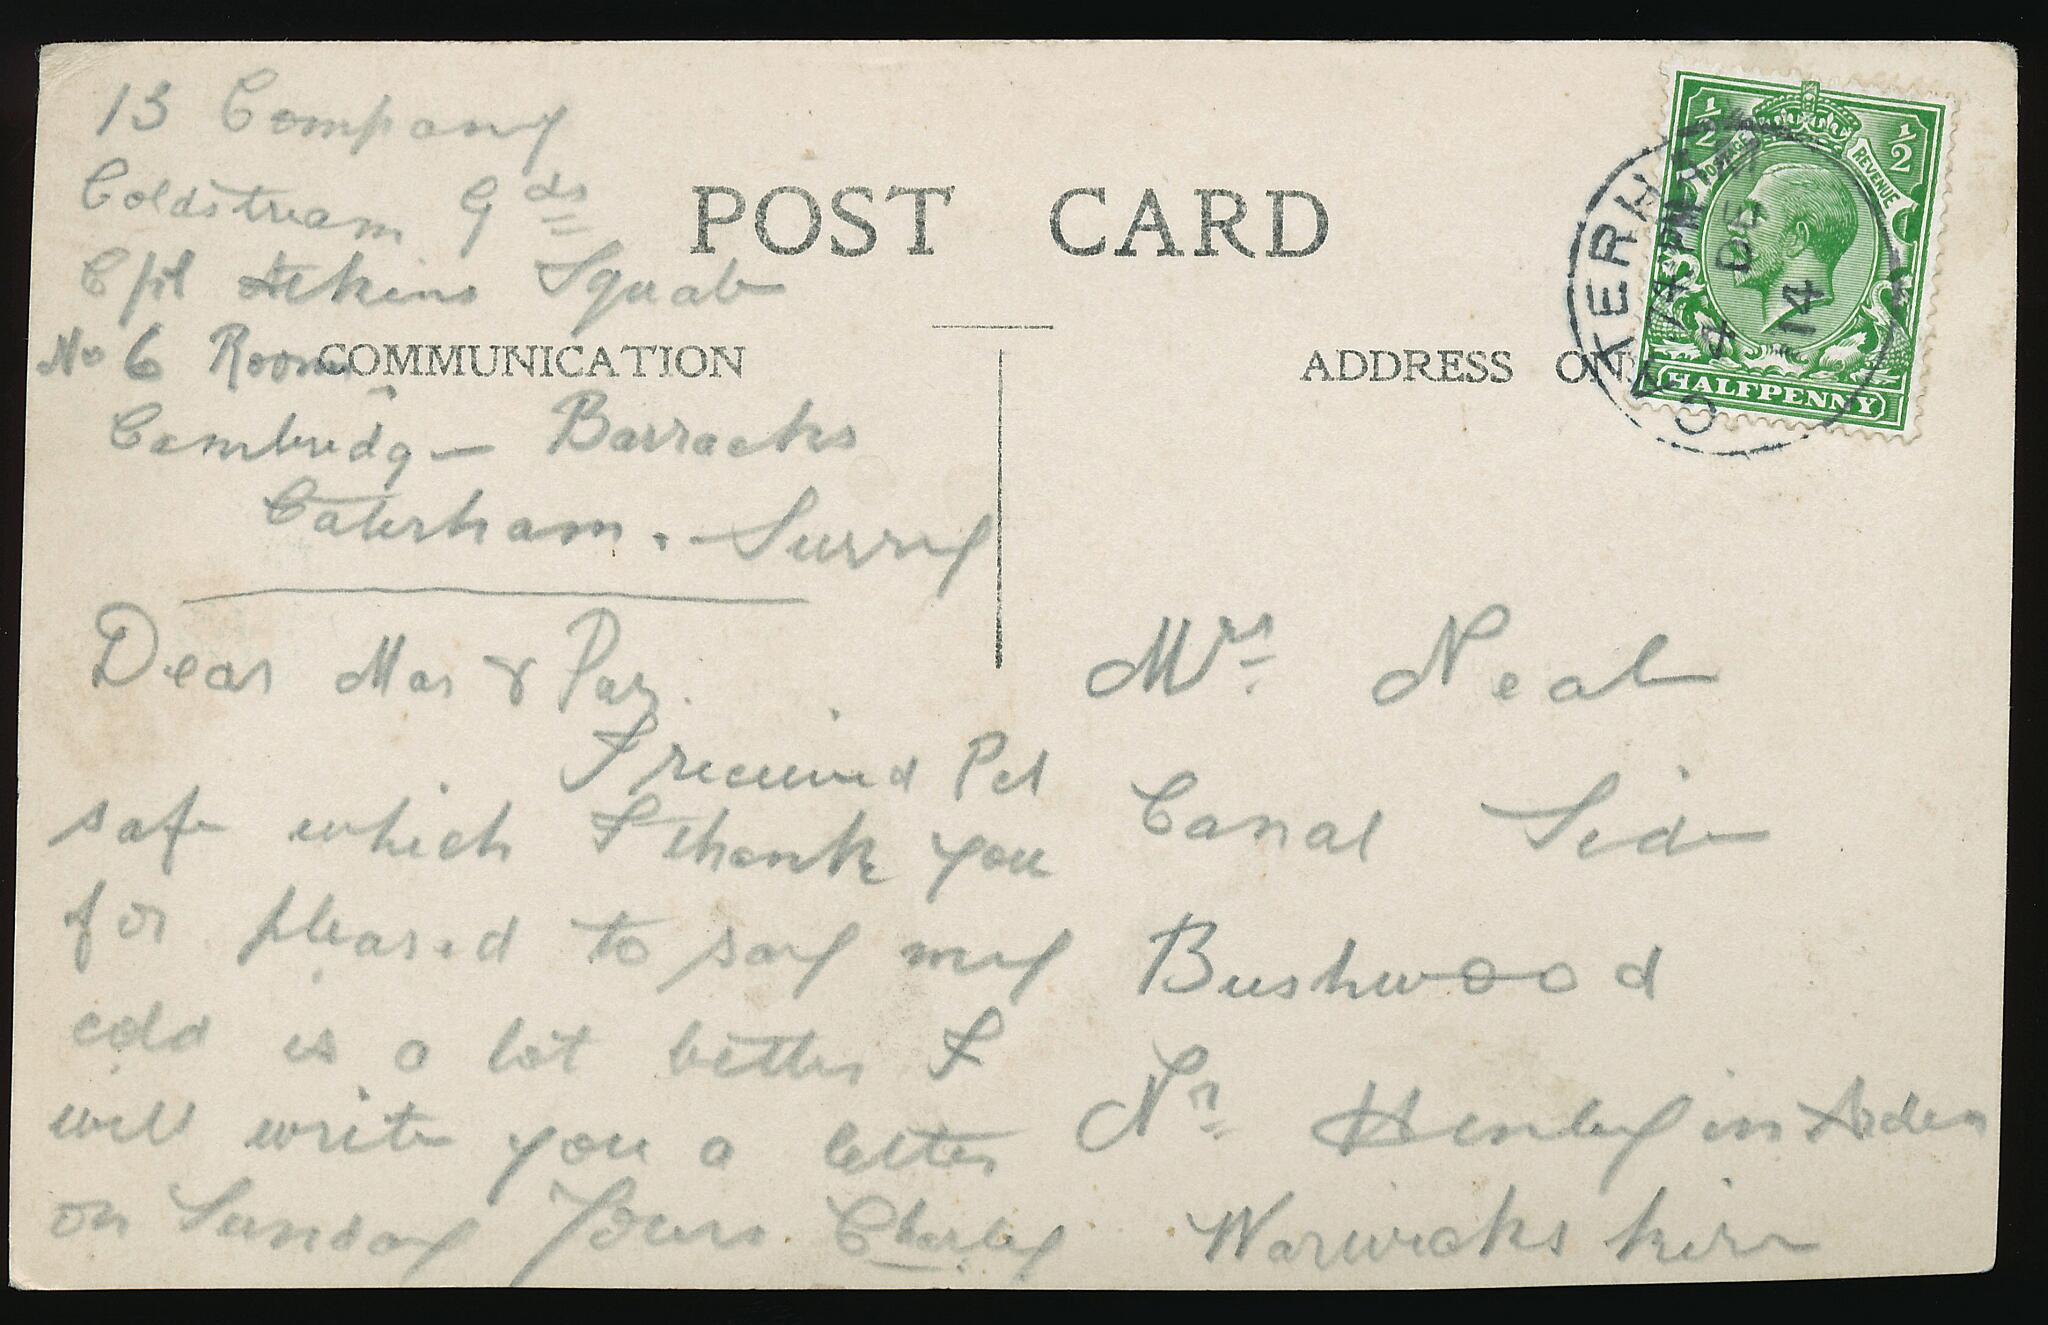 13 Company
Coldstream Gds
Cpl Atkins Squad
No 6 Room
Cambridg Barracks
Caterham. Surrey
Dear Mar & Par.
I received Pcl
safe which I thank you
for pleased to say my
cold is a lot better I
will write you a letter
on Sunday Yours Charley
POST CARD
COMMUNICATION
ADDRESS ON
Mrs Neal
Canal Side
Bushwood
Nr Henley in Arden
Warwickshire
½ ½
POSTAGE REVENUE
HALFPENNY
4 DE
14